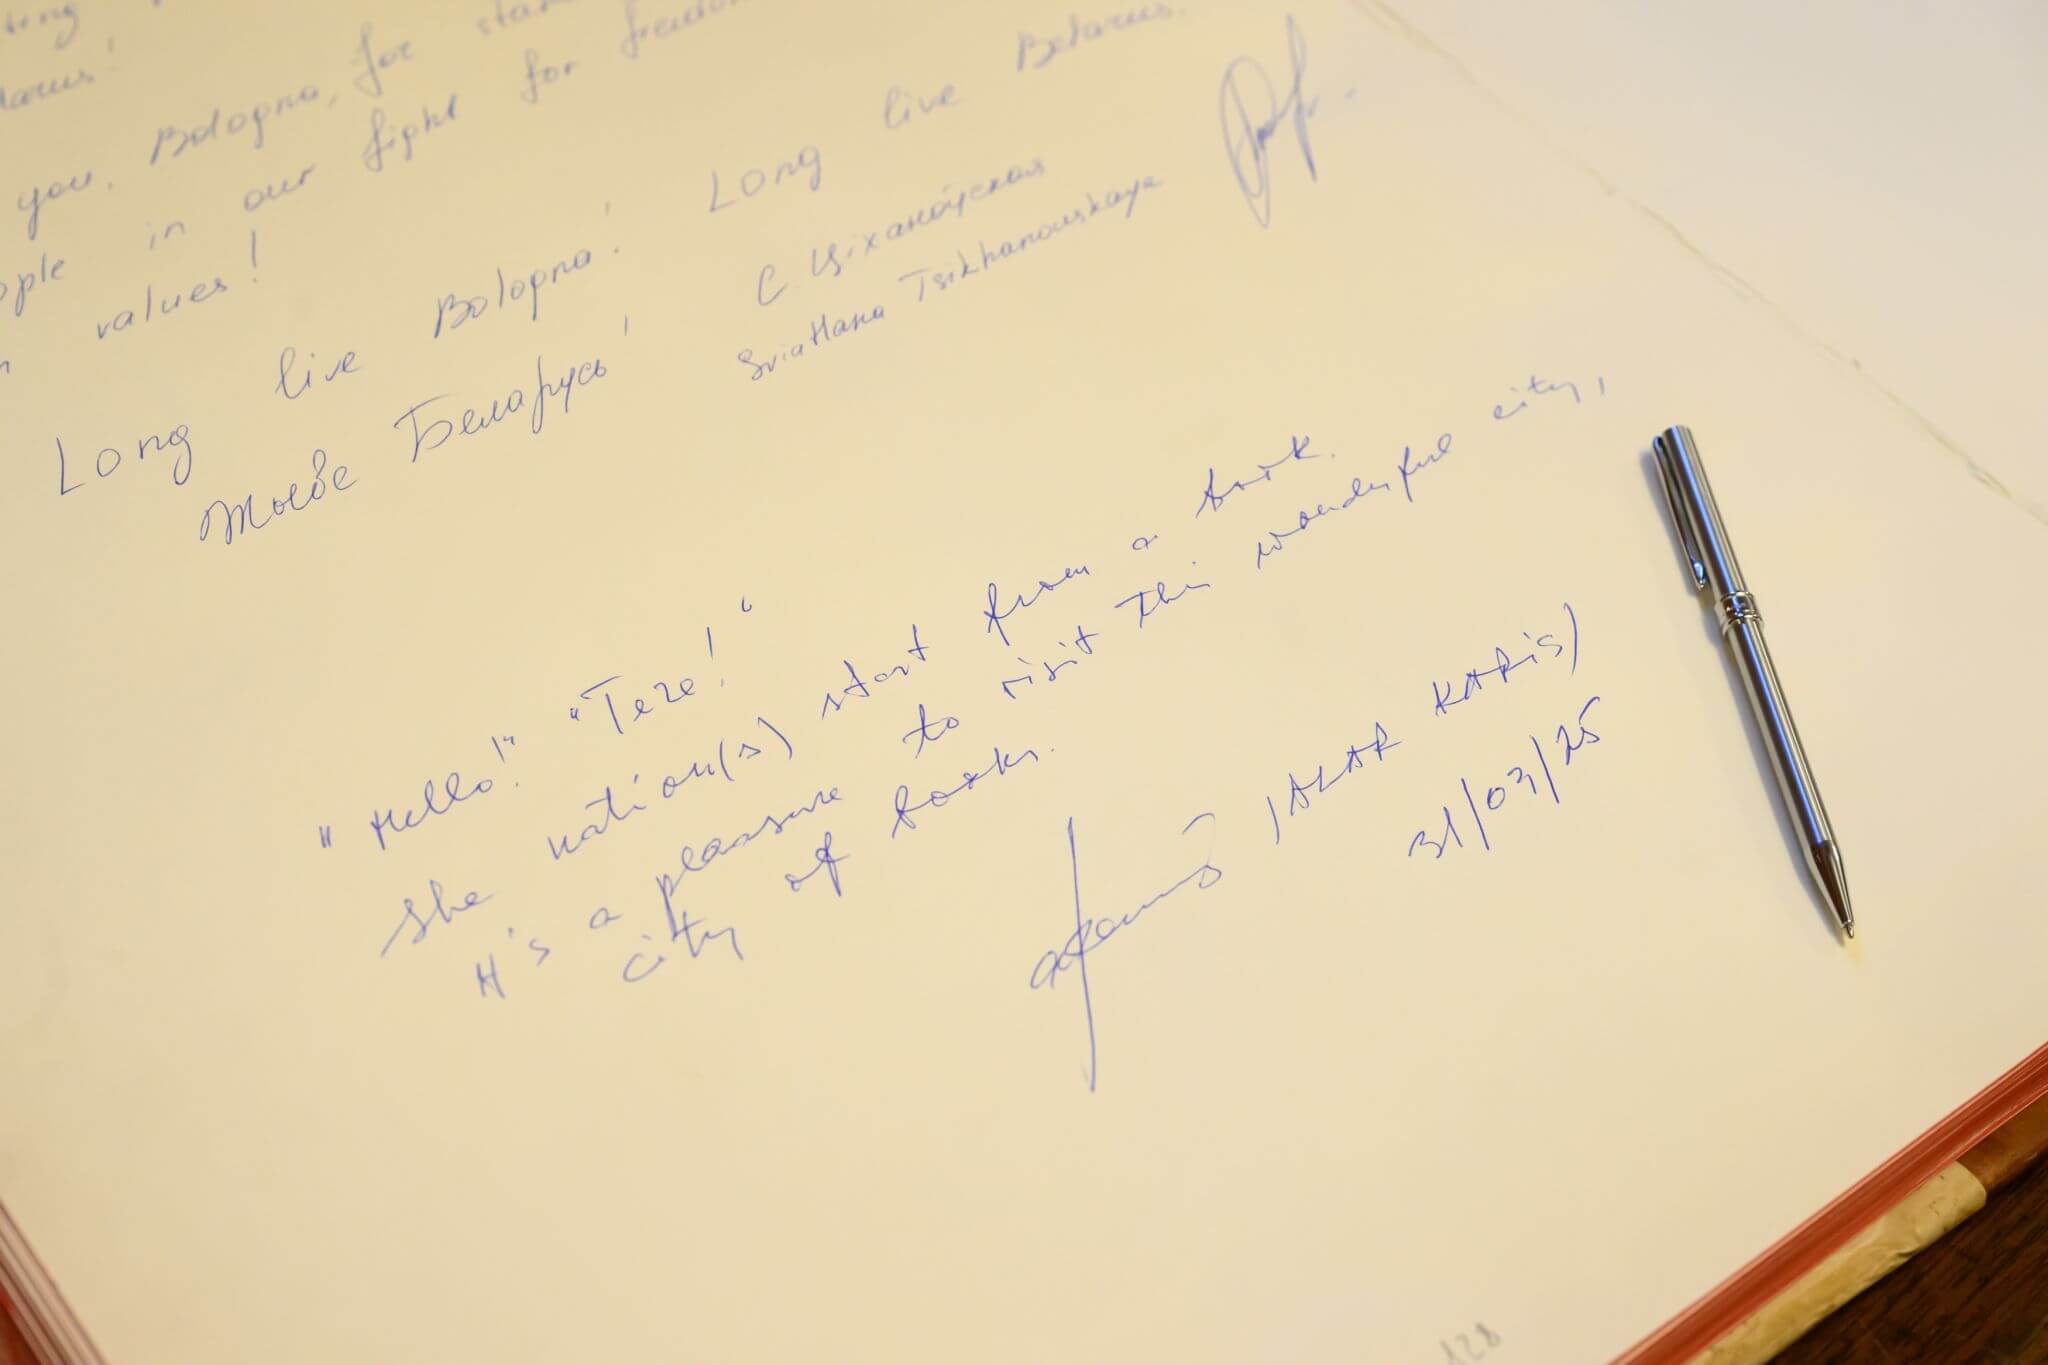 you, Bologna, for
in our fight for
values!
Long live Bologna! Long live Belarus.
Жыве Беларусь! С Ціханоўская
Sviatlana Tsikhanouskaya
"Hello!" "Tere!"
The nation(s) start from a book.
It's a pleasure to visit this wonderful city,
city of books.
(ALAR KARIS)
31/03/25
128